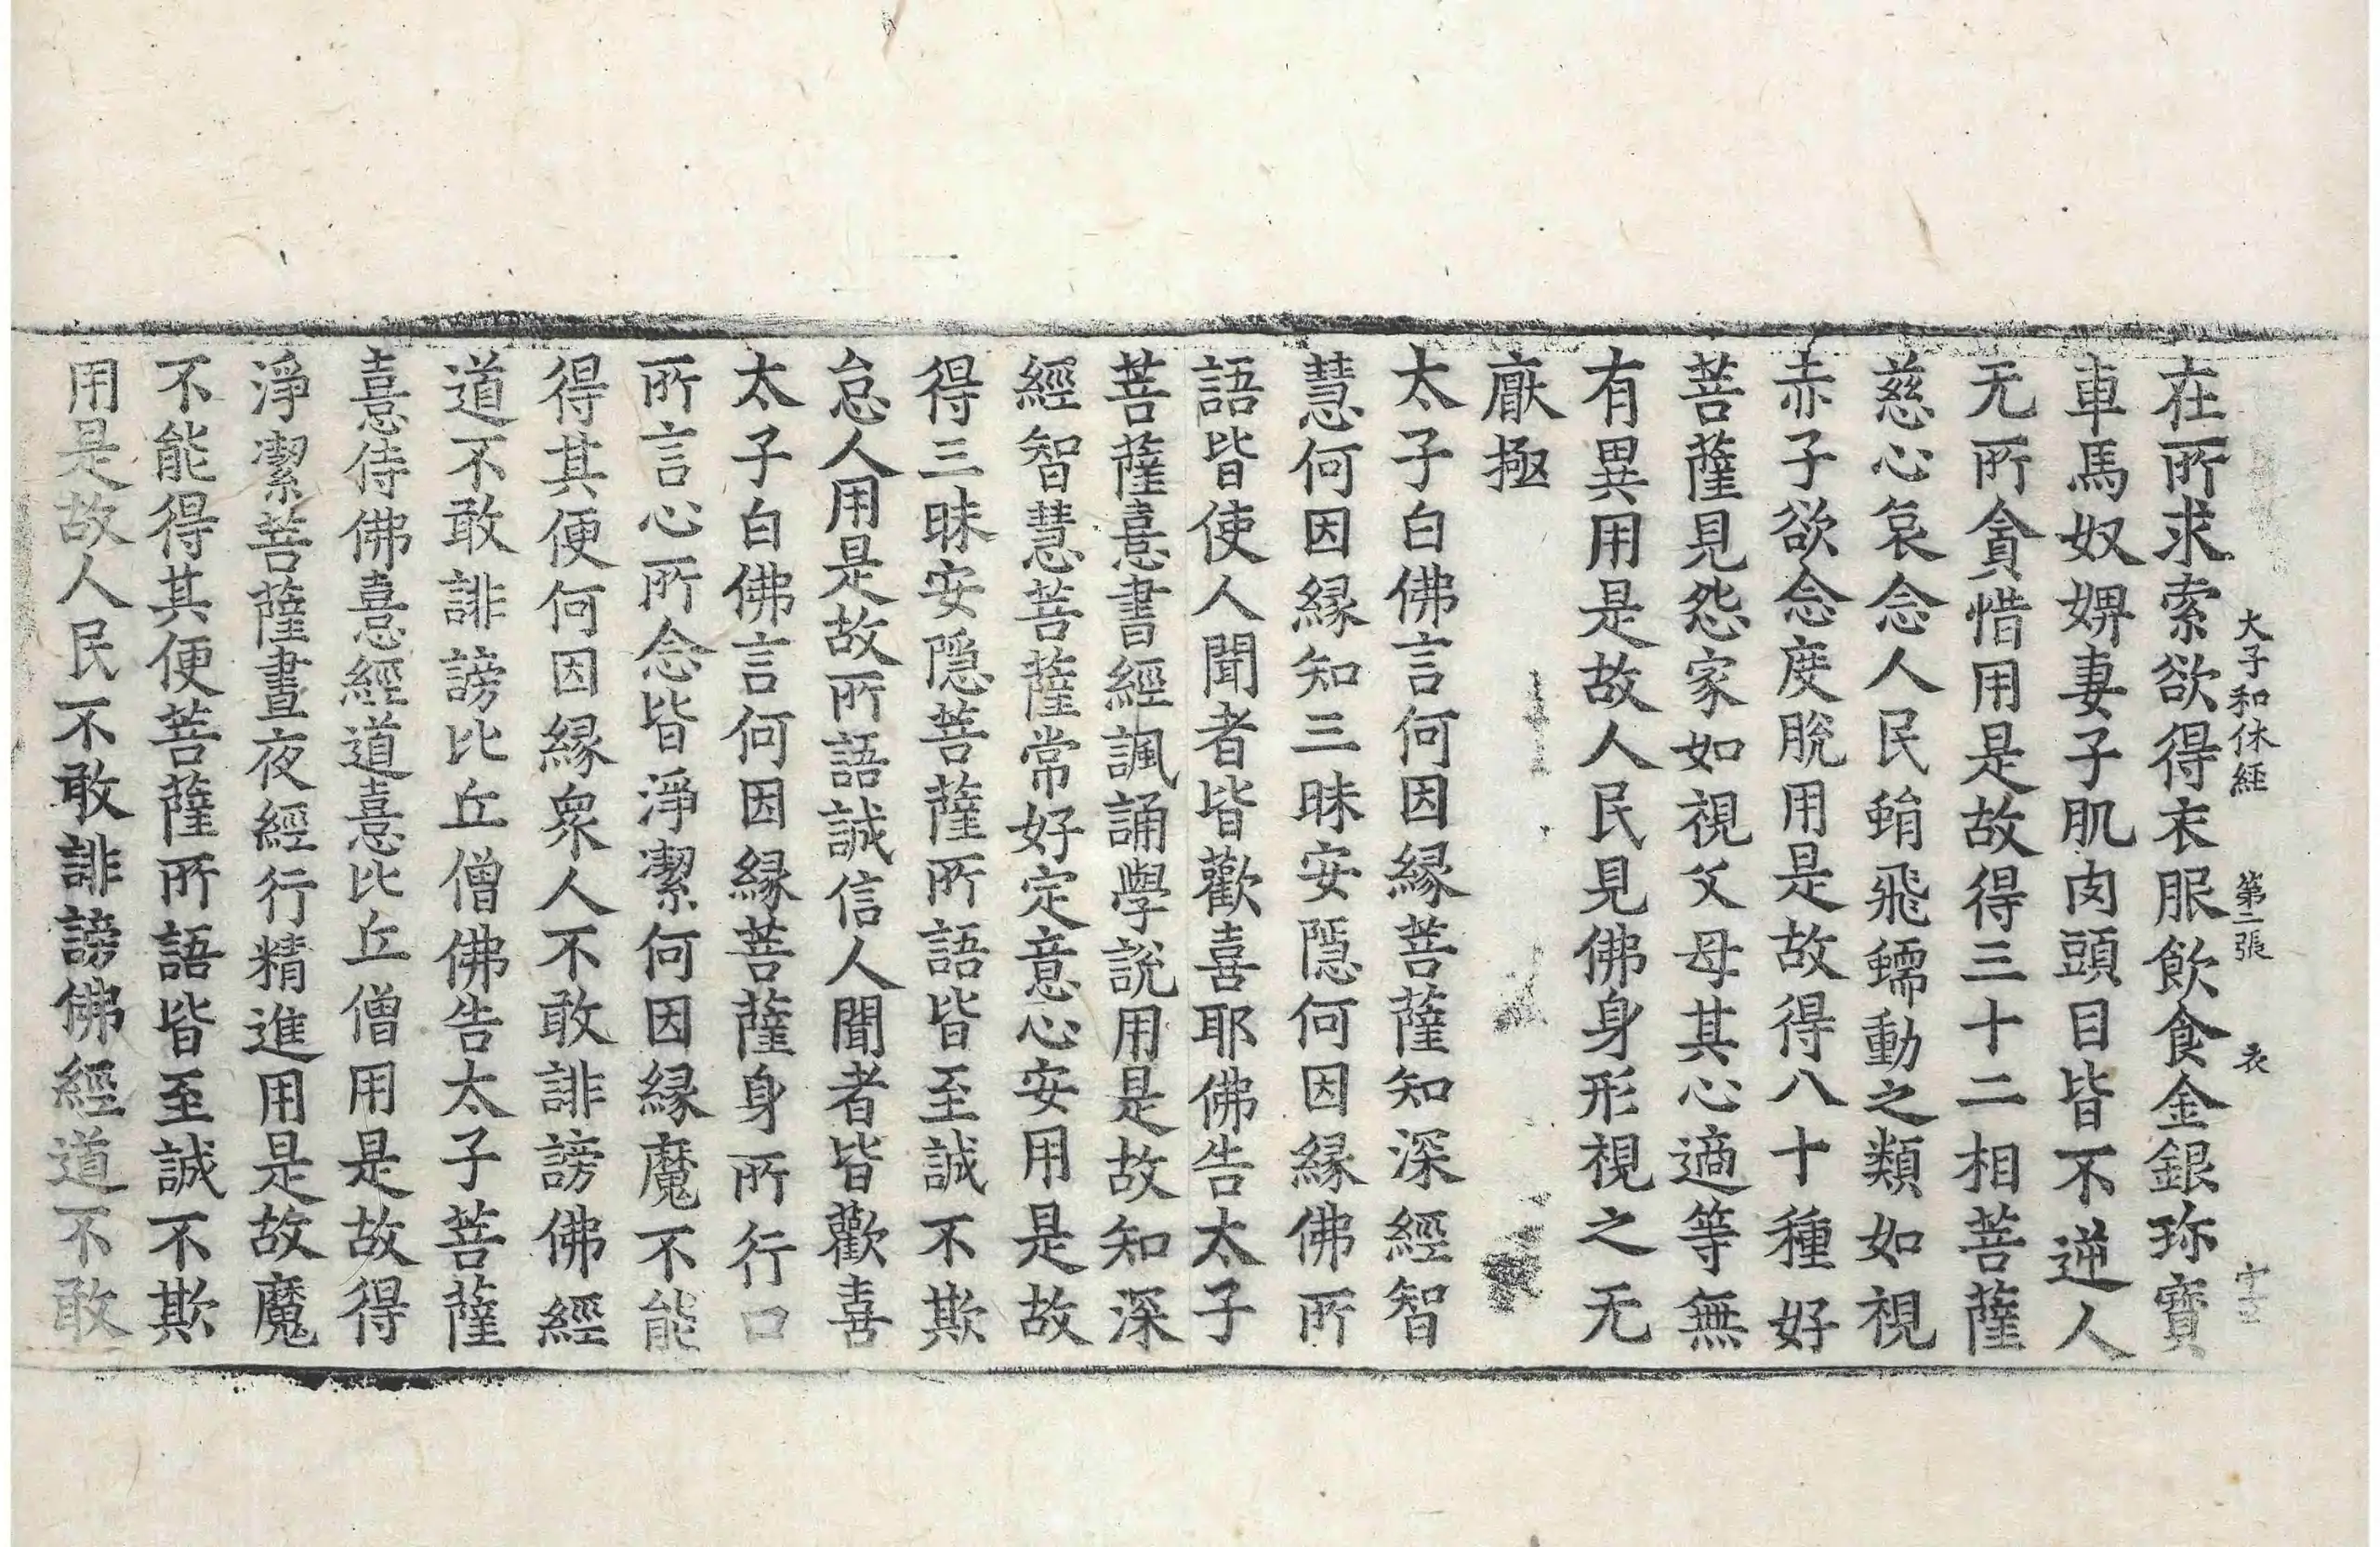 大子和休經 第二張 衣
在所求索欲得衣服飲食金銀珎寶
車馬奴婢妻子肌肉頭目皆不逆人
无所貪惜用是故得三十二相菩薩
慈心哀念人民蜎飛蠕動之類如視
赤子欲念度脫用是故得八十種好
菩薩見怨家如視父母其心適等無
有異用是故人民見佛身形視之无
猒極
太子白佛言何因緣菩薩知深經智
慧何因緣知三昧安隱何因緣佛所
語皆使人聞者皆歡喜耶佛告太子
菩薩憙書經諷誦學說用是故知深
經智慧菩薩常好定意心安用是故
得三昧安隱菩薩所語皆至誠不欺
怠人用是故所語誠信人聞者皆歡喜
太子白佛言何因緣菩薩身所行口
所言心所念皆淨潔何因緣魔不能
得其便何因緣衆人不敢誹謗佛經
道不敢誹謗比丘僧佛告太子菩薩
憙侍佛憙經道憙比丘僧用是故得
淨潔菩薩晝夜經行精進用是故魔
不能得其便菩薩所語皆至誠不欺
用是故人民不敢誹謗佛經道不敢